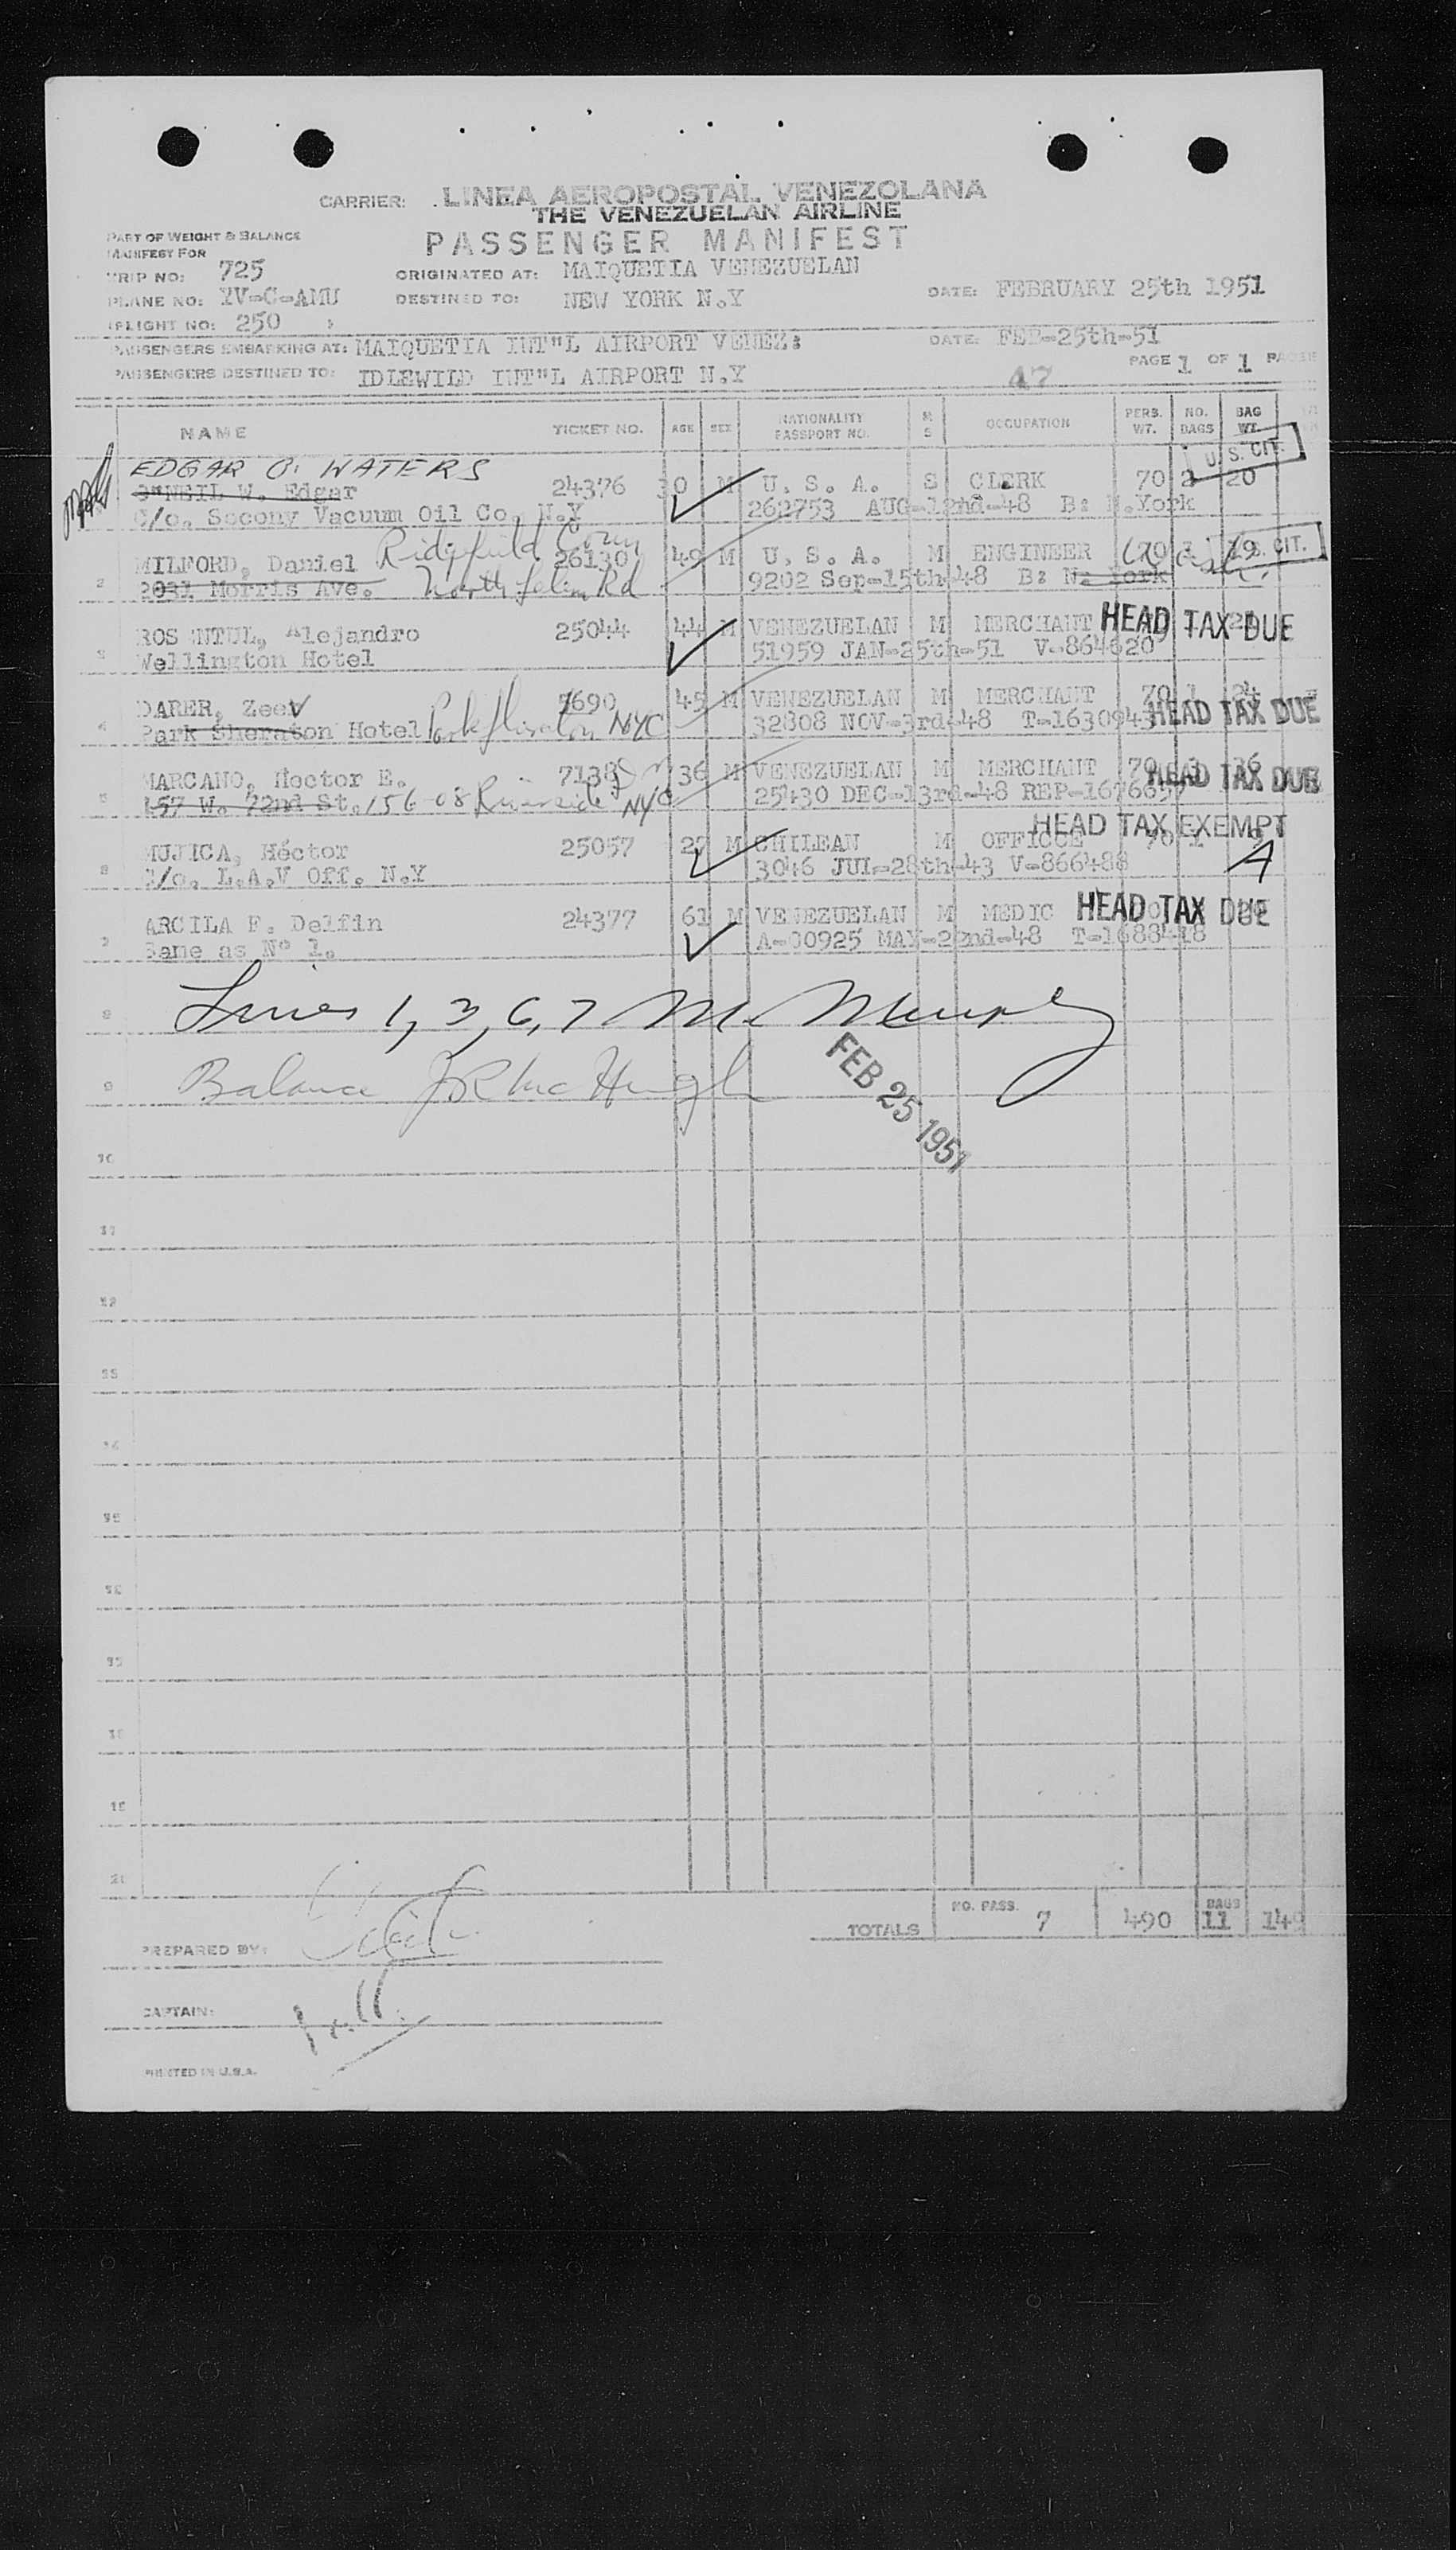 CARRIER: LINEA AEROPOSTAL VENEZOLANA
THE VENEZUELAN AIRLINE
PASSENGER MANIFEST
PART OF WEIGHT & BALANCE
MANIFEST FOR
TRIP NO: 725
PLANE NO: YV-C-AMU
FLIGHT NO: 250
ORIGINATED AT: MAIQUETIA VENEZUELAN
DESTINED TO: NEW YORK N.Y
DATE: FEBRUARY 25th 1951
PASSENGERS EMBARKING AT: MAIQUETIA INT"L AIRPORT VENEZ: DATE: FEB-25th-51
PASSENGERS DESTINED TO: IDLEWILD INT"L AIRPORT N.Y PAGE 1 OF 1
47
NAME TICKET NO. AGE SEX NATIONALITY PASSPORT NO. M S OCCUPATION PERS. WT. NO. BAGS BAG WT.
U.S. CIT.
EDGAR O. WATERS
O"NEIL W. Edgar 24376 30 M U. S. A. S CLERK 70 2 20
C/o. Socony Vacuum Oil Co. N.Y 262753 AUG-12nd-48 B: N.York
Ridgefield Conn
MILFORD, Daniel 26130 49 M U. S. A. M ENGINEER 70 19 U.S. CIT.
2 2031 Morris Ave. North Rd 9202 Sep-15th-48 B: N: York
ROSENTUL, Alejandro 25044 44 M VENEZUELAN M MERCHANT HEAD TAX DUE
3 Wellington Hotel 51959 JAN-25th-51 V-864620
DARER, Zeev 7690 45 M VENEZUELAN M MERCHANT 70 1 24
4 Park Sheraton Hotel NYC 32808 NOV-3rd-48 T-1630943 HEAD TAX DUE
MARCANO, Hector E. 7138 36 M VENEZUELAN M MERCHANT 70 3 36 HEAD TAX DUE
5 157 W. 72nd St. 156-08 Riverside NYC 25430 DEC-13rd-48 REP-1676657
HEAD TAX EXEMPT
MUJICA, Héctor 25057 M CHILEAN M OFFICCE 70 1 9
6 C/o. L.A.V Off. N.Y 3046 JUI-28th-43 V-866488 A
ARCILA F. Delfin 24377 61 M VENEZUELAN M MEDIC HEAD TAX DUE
7 Same as Nº 1. A-00925 MAY-22nd-48 T-1688418
8 Lines 1, 3, 6, 7 M. Murphy
9 Balance J R McHugh
FEB 25 1951
10
11
12
13
14
15
16
17
18
19
20
TOTALS NO. PASS. 7 490 BAGS 11 149
PREPARED BY:
CAPTAIN:
PRINTED IN U.S.A.